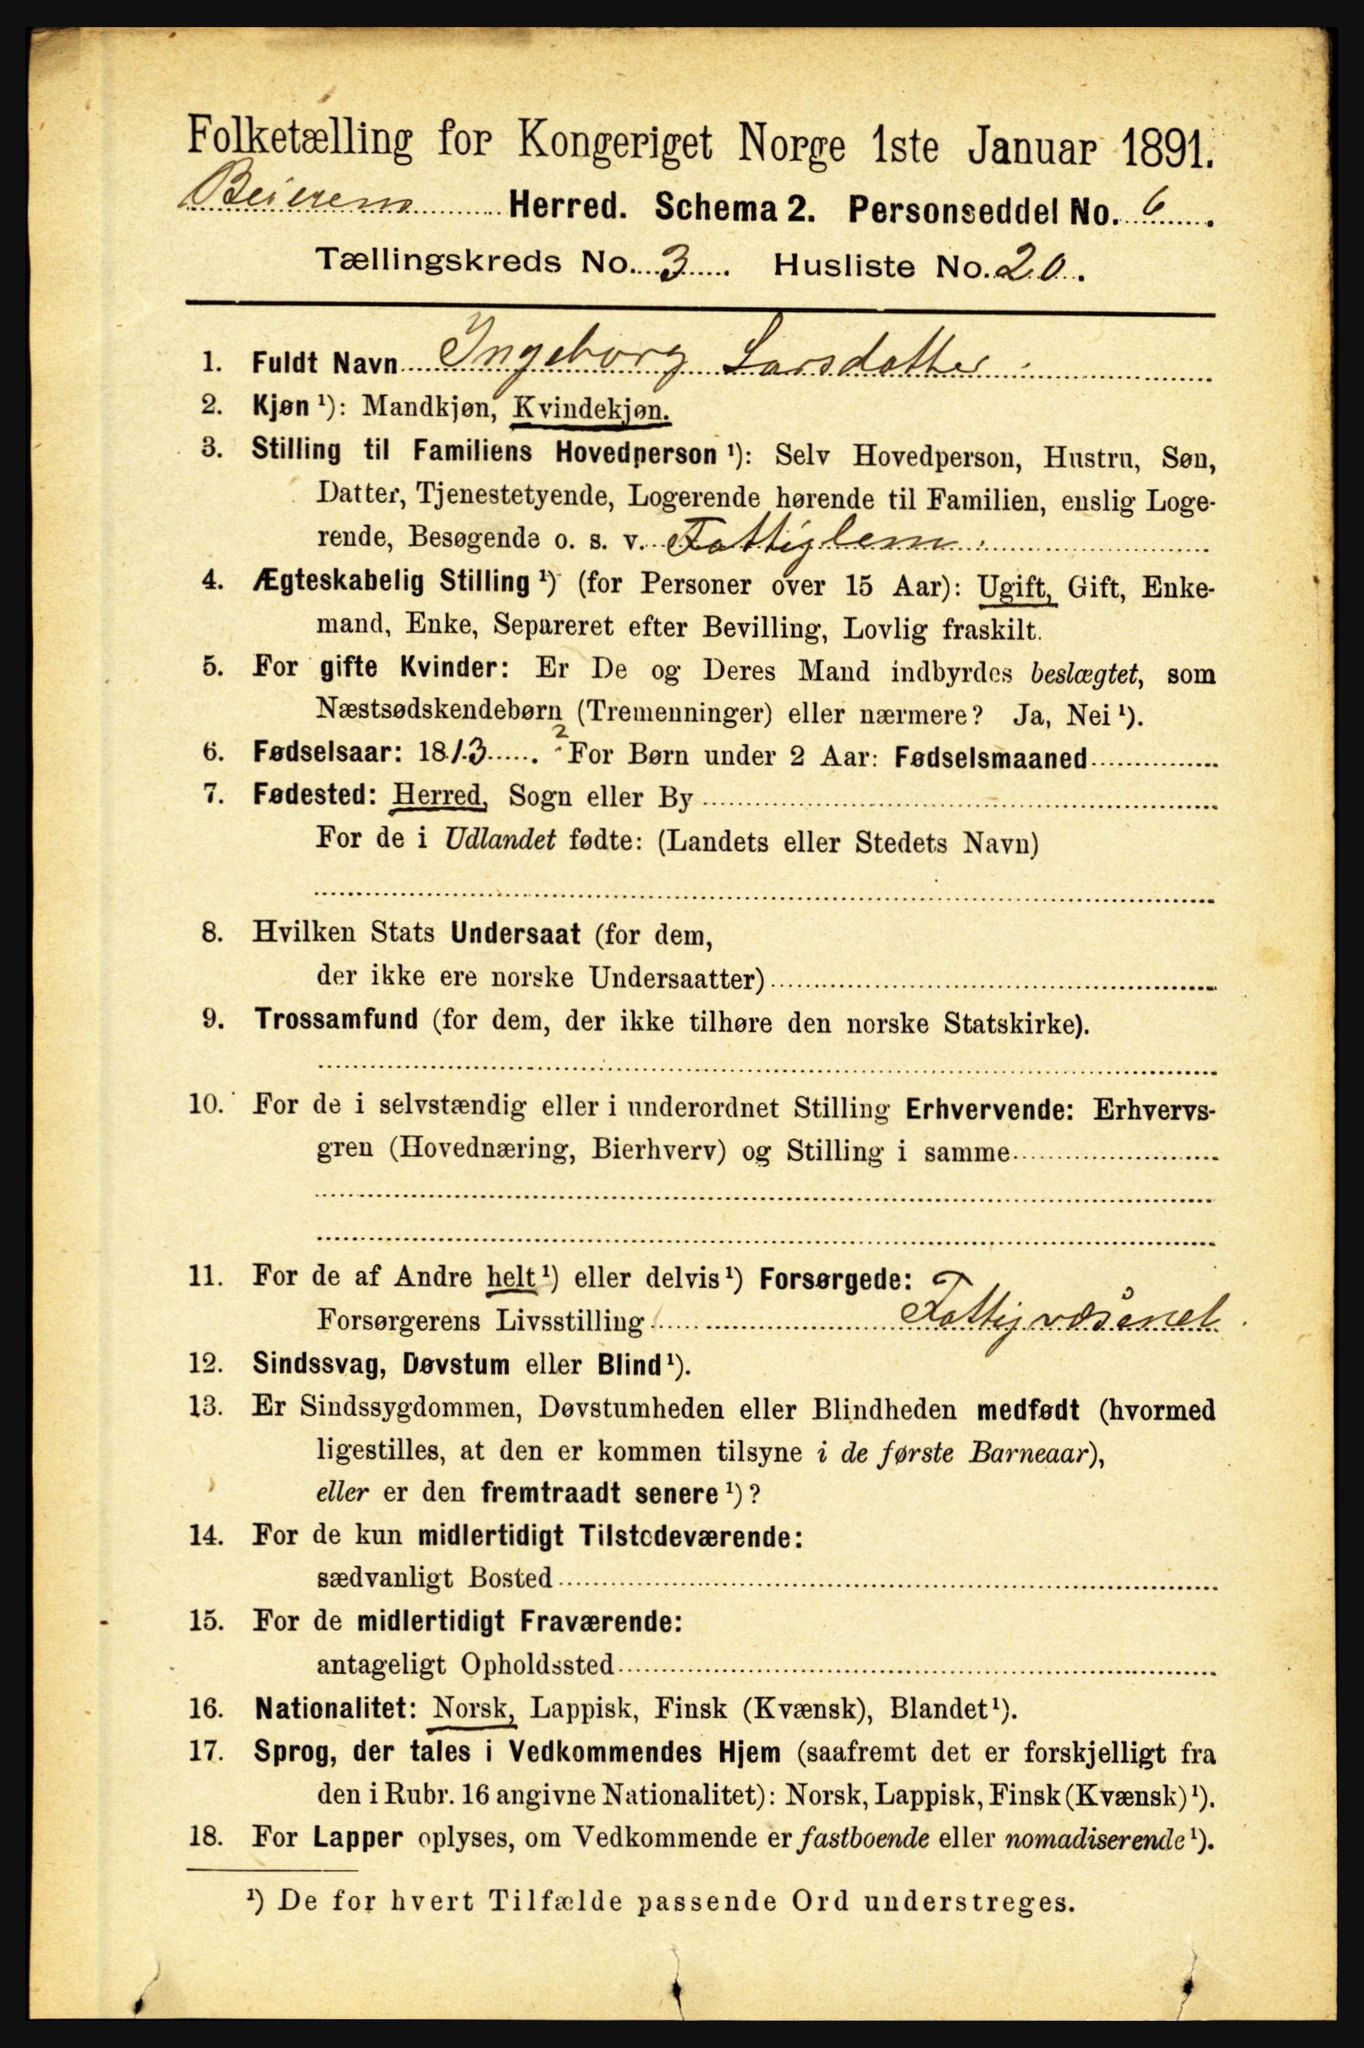 Folketælling for Kongeriget Norge 1ste Januar 1891.
Beieren Herred. Schema 2. Personseddel No. 6.
Tællingskreds No. 3. Husliste No. 20.
1. Fuldt Navn Ingeborg Larsdatter
2. Kjøn ¹): Mandkjøn, Kvindekjøn.
3. Stilling til Familiens Hovedperson ¹): Selv Hovedperson, Hustru, Søn,
Datter, Tjenestetyende, Logerende hørende til Familien, enslig Loge-
rende, Besøgende o. s. v. Fattiglem
4. Ægteskabelig Stilling ¹) (for Personer over 15 Aar): Ugift, Gift, Enke-
mand, Enke, Separeret efter Bevilling, Lovlig fraskilt.
5. For gifte Kvinder: Er De og Deres Mand indbyrdes beslægtet, som
Næstsødskendebørn (Tremenninger) eller nærmere? Ja, Nei ¹).
6. Fødselsaar: 1813. ² For Børn under 2 Aar: Fødselsmaaned
7. Fødested: Herred, Sogn eller By
For de i Udlandet fødte: (Landets eller Stedets Navn)
8. Hvilken Stats Undersaat (for dem,
der ikke ere norske Undersaatter)
9. Trossamfund (for dem, der ikke tilhøre den norske Statskirke).
10. For de i selvstændig eller i underordnet Stilling Erhvervende: Erhvervs-
gren (Hovednæring, Bierhverv) og Stilling i samme
11. For de af Andre helt ¹) eller delvis ¹) Forsørgede:
Forsørgerens Livsstilling Fattigvæsenet
12. Sindssvag, Døvstum eller Blind ¹).
13. Er Sindssygdommen, Døvstumheden eller Blindheden medfødt (hvormed
ligestilles, at den er kommen tilsyne i de første Barneaar),
eller er den fremtraadt senere ¹)?
14. For de kun midlertidigt Tilstedeværende:
sædvanligt Bosted
15. For de midlertidigt Fraværende:
antageligt Opholdssted
16. Nationalitet: Norsk, Lappisk, Finsk (Kvænsk), Blandet ¹).
17. Sprog, der tales i Vedkommendes Hjem (saafremt det er forskjelligt fra
den i Rubr. 16 angivne Nationalitet): Norsk, Lappisk, Finsk (Kvænsk) ¹).
18. For Lapper oplyses, om Vedkommende er fastboende eller nomadiserende ¹).
¹) De for hvert Tilfælde passende Ord understreges.